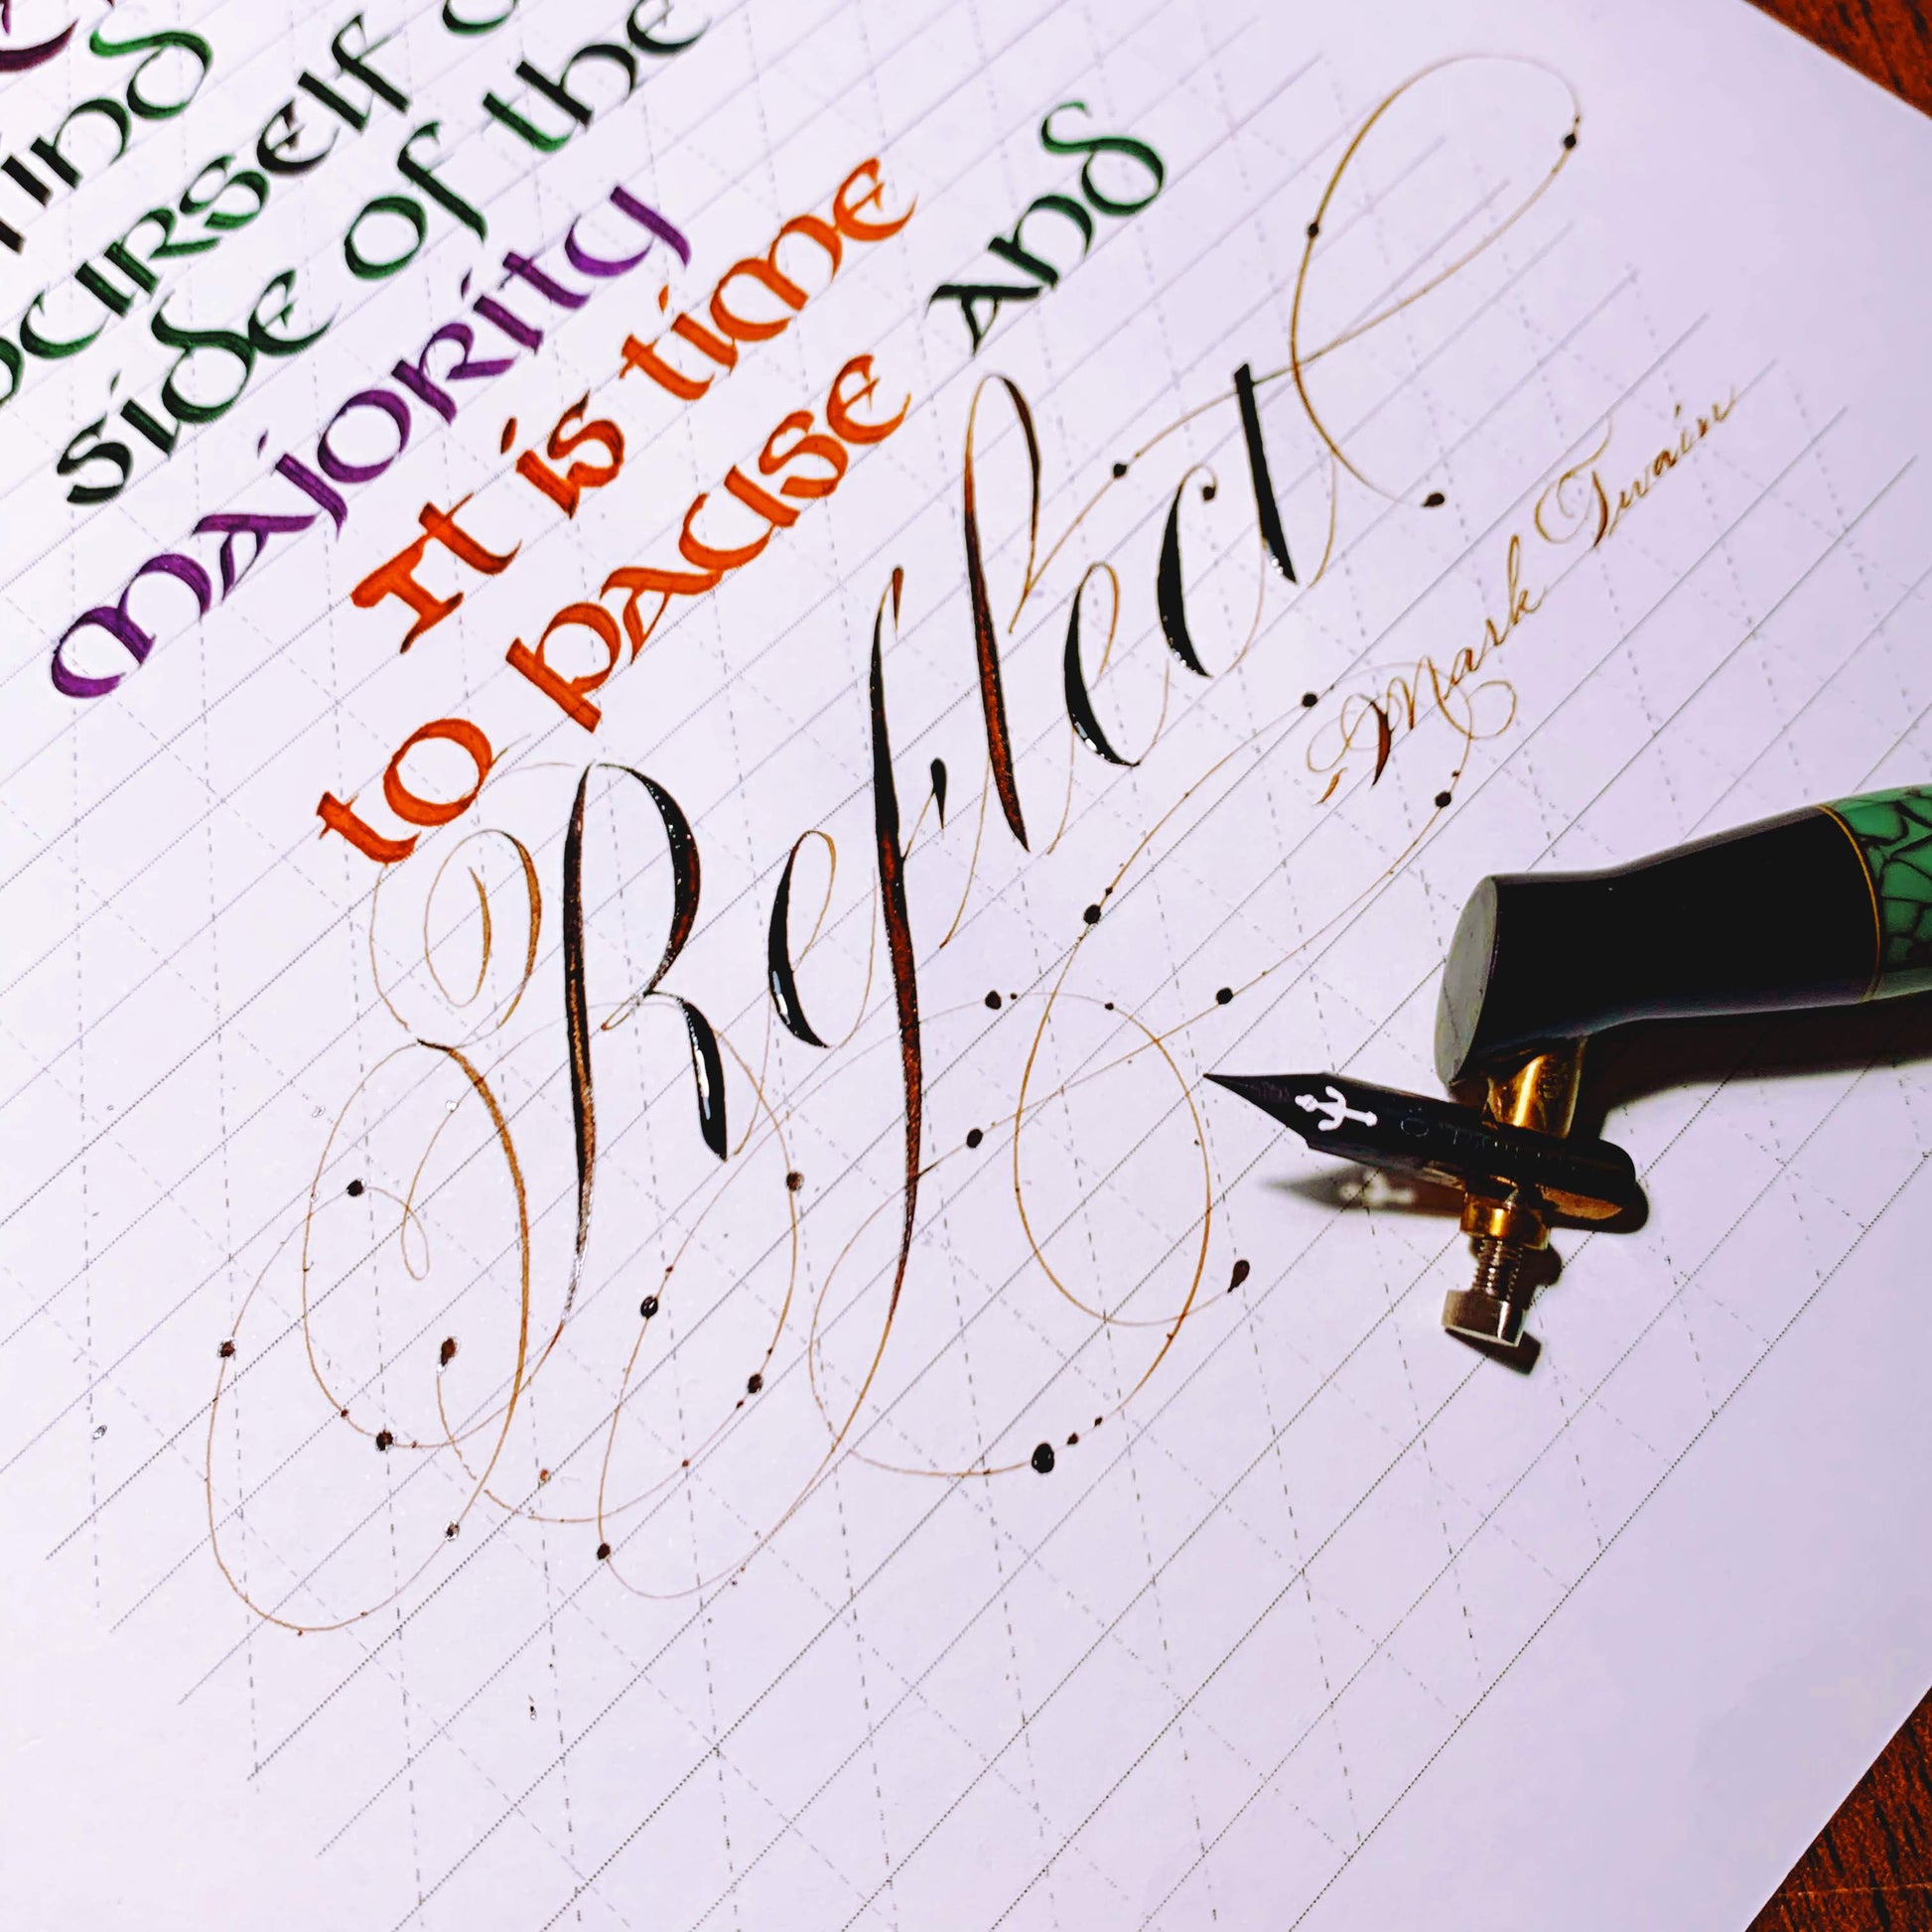 side of the
majority
It is time
to pause and
Reflect
Mark Twain